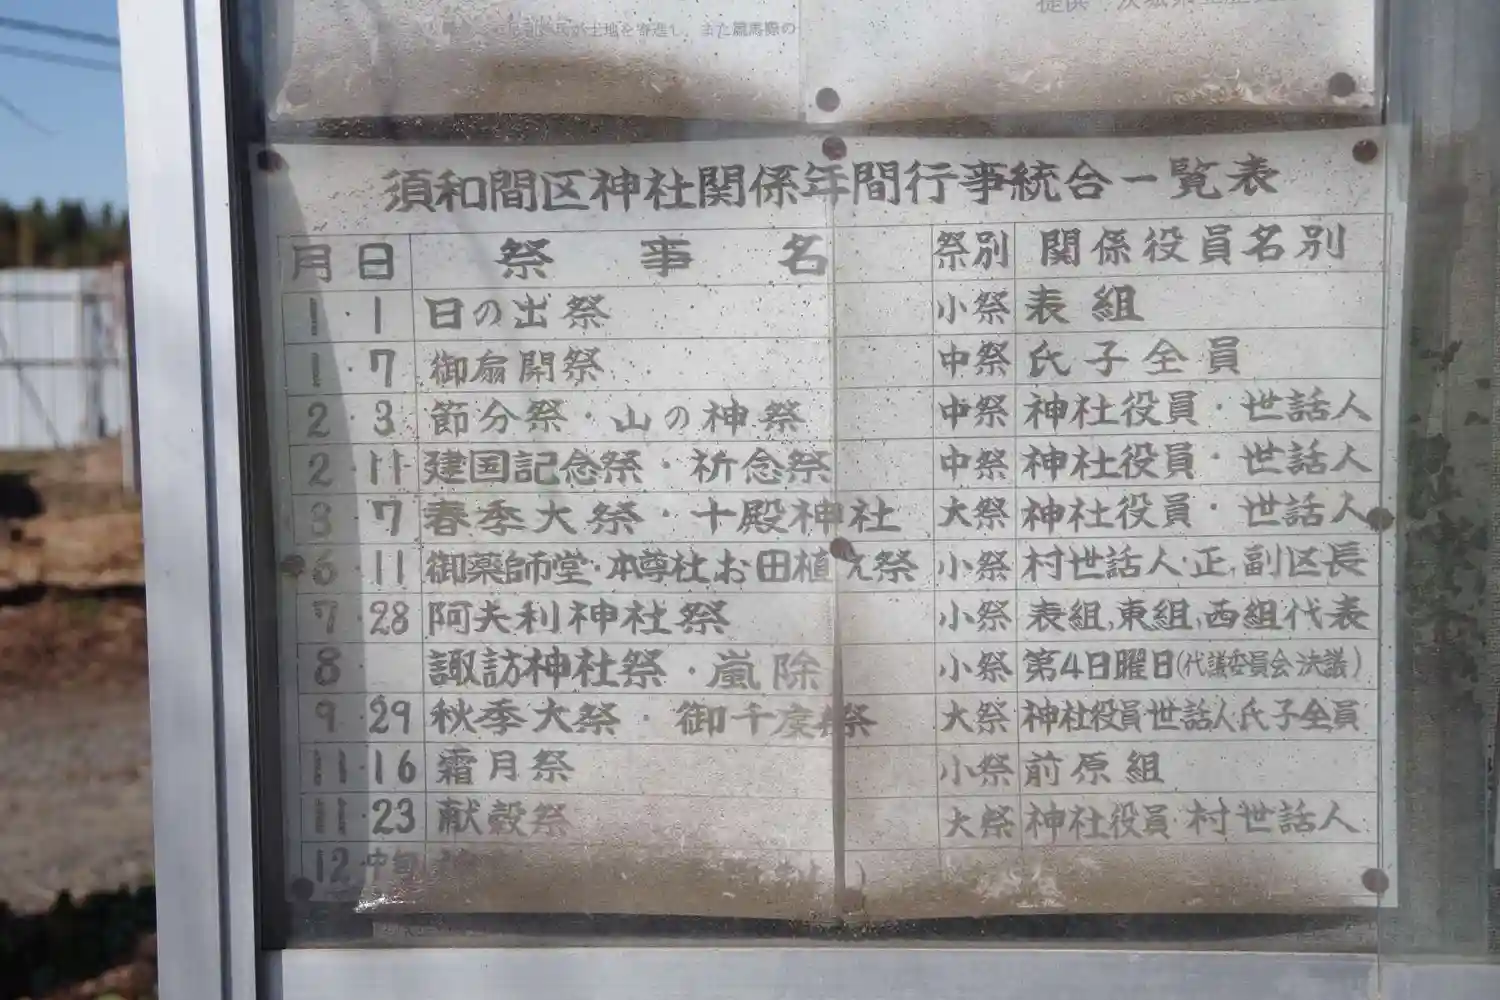 が土地を寄進し、また競馬祭の
提供
須和間区神社関係年間行事統合一覧表
月日 祭事名 祭別 関係役員名別
1・1 日の出祭 小祭 表組
1・7 御扇開祭 中祭 氏子全員
2・3 節分祭・山の神祭 中祭 神社役員・世話人
2・11 建国記念祭・祈念祭 中祭 神社役員・世話人
3・7 春季大祭・十殿神社 大祭 神社役員・世話人
6・11 御薬師堂・本尊社お田植え祭 小祭 村世話人・正、副区長
7・28 阿夫利神社祭 小祭 表組、東組、西組代表
8・ 諏訪神社祭・嵐除 小祭 第4日曜日(代議委員会決議)
9・29 秋季大祭・御千度祭 大祭 神社役員世話人氏子全員
11・16 霜月祭 小祭 前原組
11・23 献穀祭 大祭 神社役員・村世話人
12・中旬